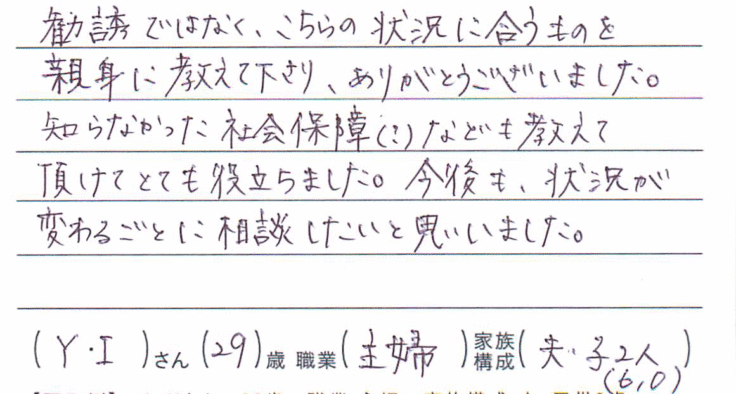 勧誘ではなく、こちらの状況に合うものを
親身に教えて下さり、ありがとうございました。
知らなかった社会保障(?)なども教えて
頂けてとても役立ちました。今後も、状況が
変わるごとに相談したいと思いました。
(Y・I)さん(29)歳 職業(主婦)家族構成(夫・子2人(6,0))